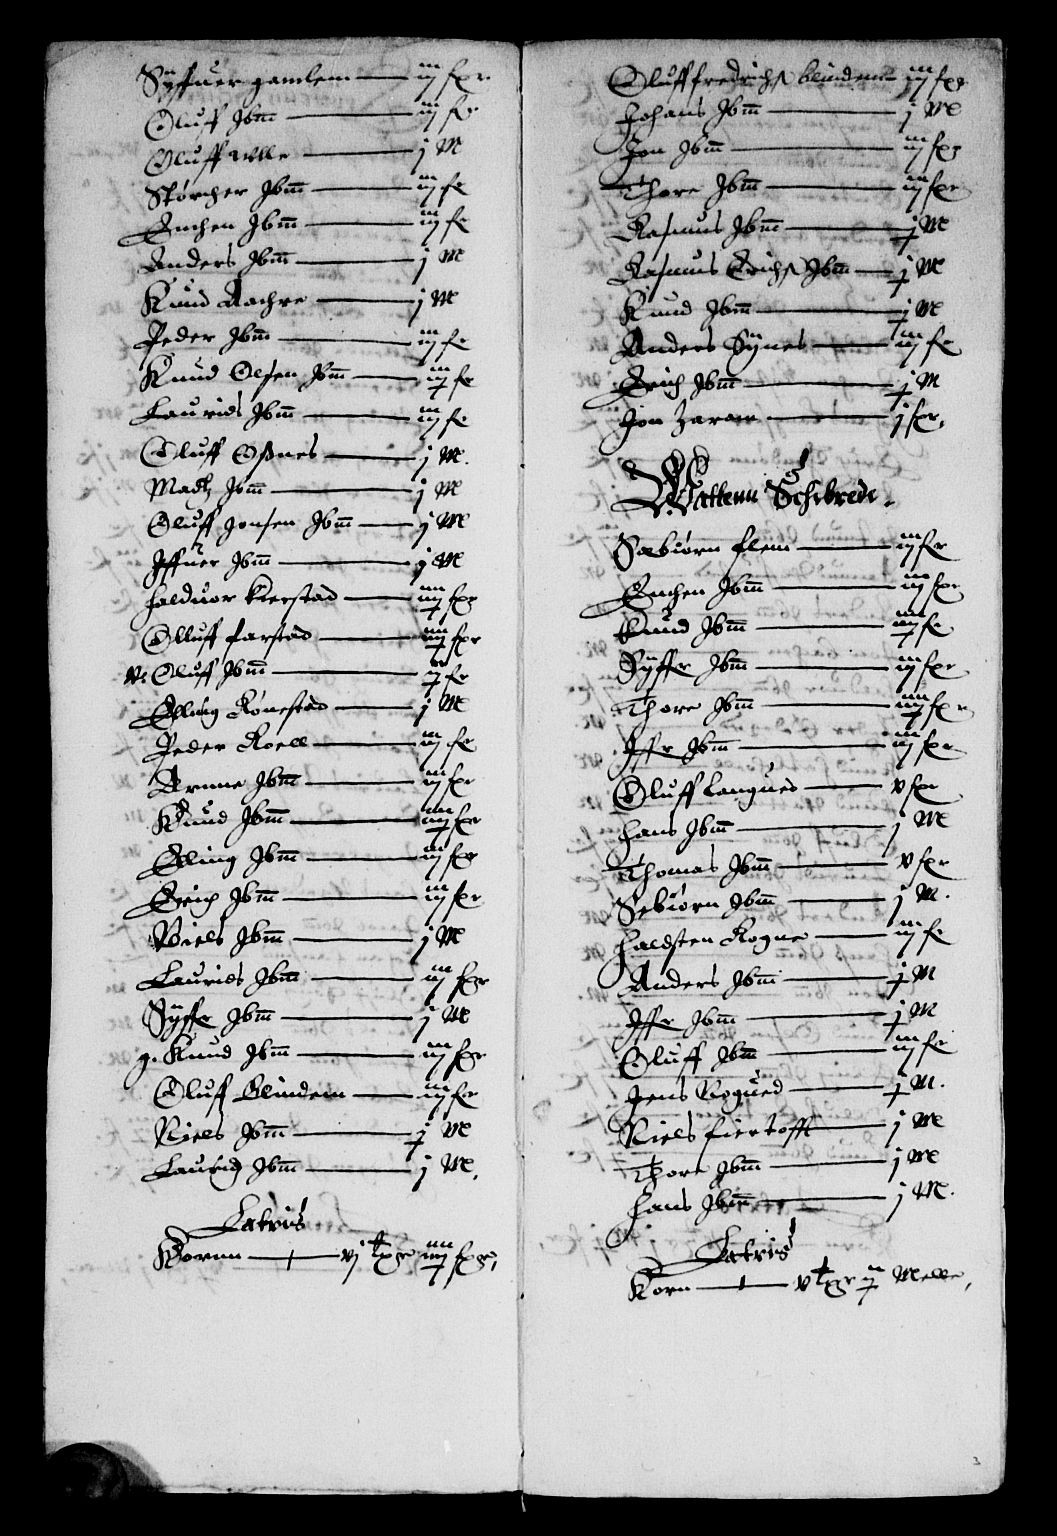 Syffuer gamlem — iij fxr
Oluff Ibm — iij fr
Oluff Wlle — j M
Størcher Ibm — iij fr
Enchen Ibm — iij fr
Anders Ibm — j M
Knud Aachre — j M
Peder Ibm — iij fr
Knud Olsen Ibm — iij fr
Laurids Ibm — iij fr
Oluff Oßnes — j M.
Madtz Ibm — j M
Oluff Jonsen Ibm — j M
Iffuer Ibm — j M
Halduor Kierstad — iiij fxr
Olluff farstad — iiij fxr
Oluff Ibm — ij fr
Elling Rønestad — j M
Peder Roell — iij fr
Arnne Ibm — iij fxr
Knud Ibm — iiij fxr
Elling Ibm — iij fxr
Erich Ibm — iij fxr
Niels Ibm — j M
Laurids Ibm — iij fxr
Syffr Ibm — j M
g. Knud Ibm — iij fxr
Oluff Blindem — iij fxr
Niels Ibm — j M
Lauridz Ibm — j M.
Latris
Kornn — vj iiij fxr,
Oluff fredrichs blindem — iij fxr
Johans Ibm — j M
Jon Ibm — iij fxr
Thore Ibm — iij fxr
Rasmus Ibm — j M
Rasmus Erichs Ibm — j M
Knud Ibm — j M
Anders Synes — iij fr
Erich Ibm — j M
Jon — j fxr,
Wattenn Schibrede.
Sæbiørn flem — iij fr
Enchen Ibm — iij fxr
Knud Ibm — iiij fr
Syffr Ibm — iij fxr
Thore Ibm — iiij fxr
Iffr Ibm — iij fxr
Oluff Langues — v fxr
Hans Ibm — j M
Thomas Ibm — v fxr
Sebiørn Ibm — j M.
Haldsten Rogne — iij fr
Anders Ibm — j M
Iffr Ibm — j M
Oluff Ibm — iij fr
Jens Rogued — j M.
Niels fiertofft — j M
Thore Ibm — j M
Hans Ibm — j M.
Latris
Korn — v ij Melle,
3